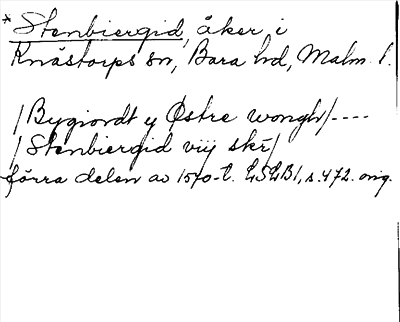 *Stenbiergid, åker i
Knästorps sn, Bara hd, Malm. l.
/Bygiordt y Østre wongh/----
/Stenbiergid viij skr/
förra delen av 1570-t. LSLB1, s.472. orig.